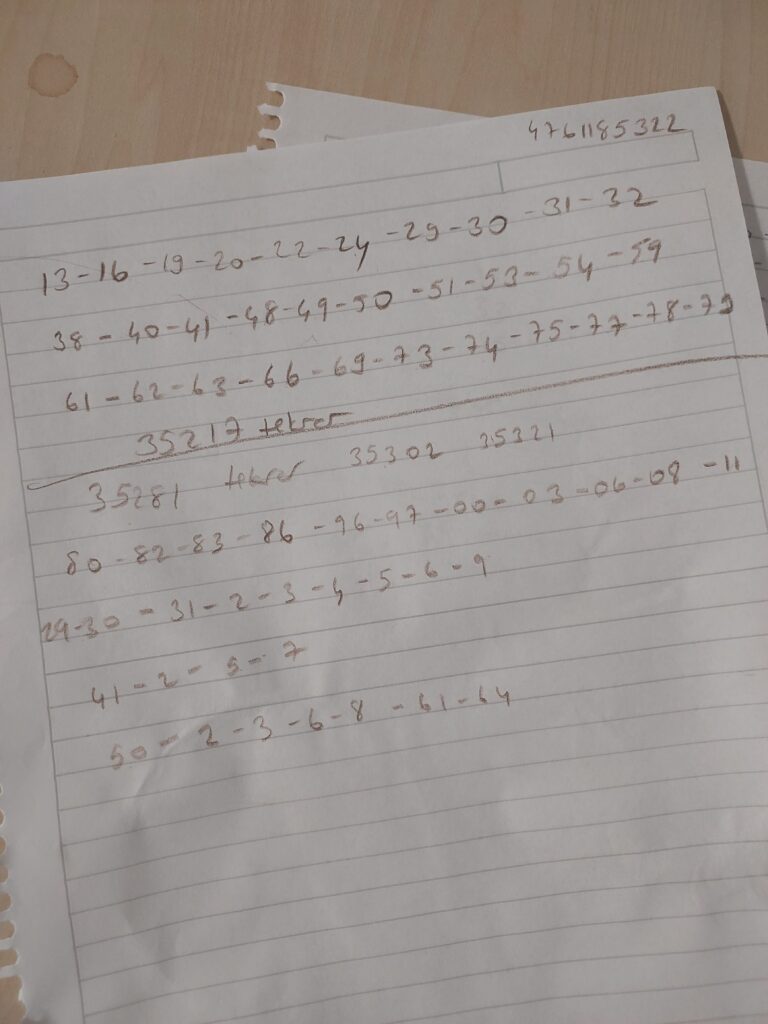 4761185322
13-16-19-20-22-24-29-30-31-32
38-40-41-48-49-50-51-53-54-59
61-62-63-66-69-73-74-75-77-78-79
35217 tekrar
35281 tekrar 35302 35321
80-82-83-86-96-97-00-03-06-08-11
29-30-31-2-3-4-5-6-9
41-2-5-7
50-2-3-6-8-61-64